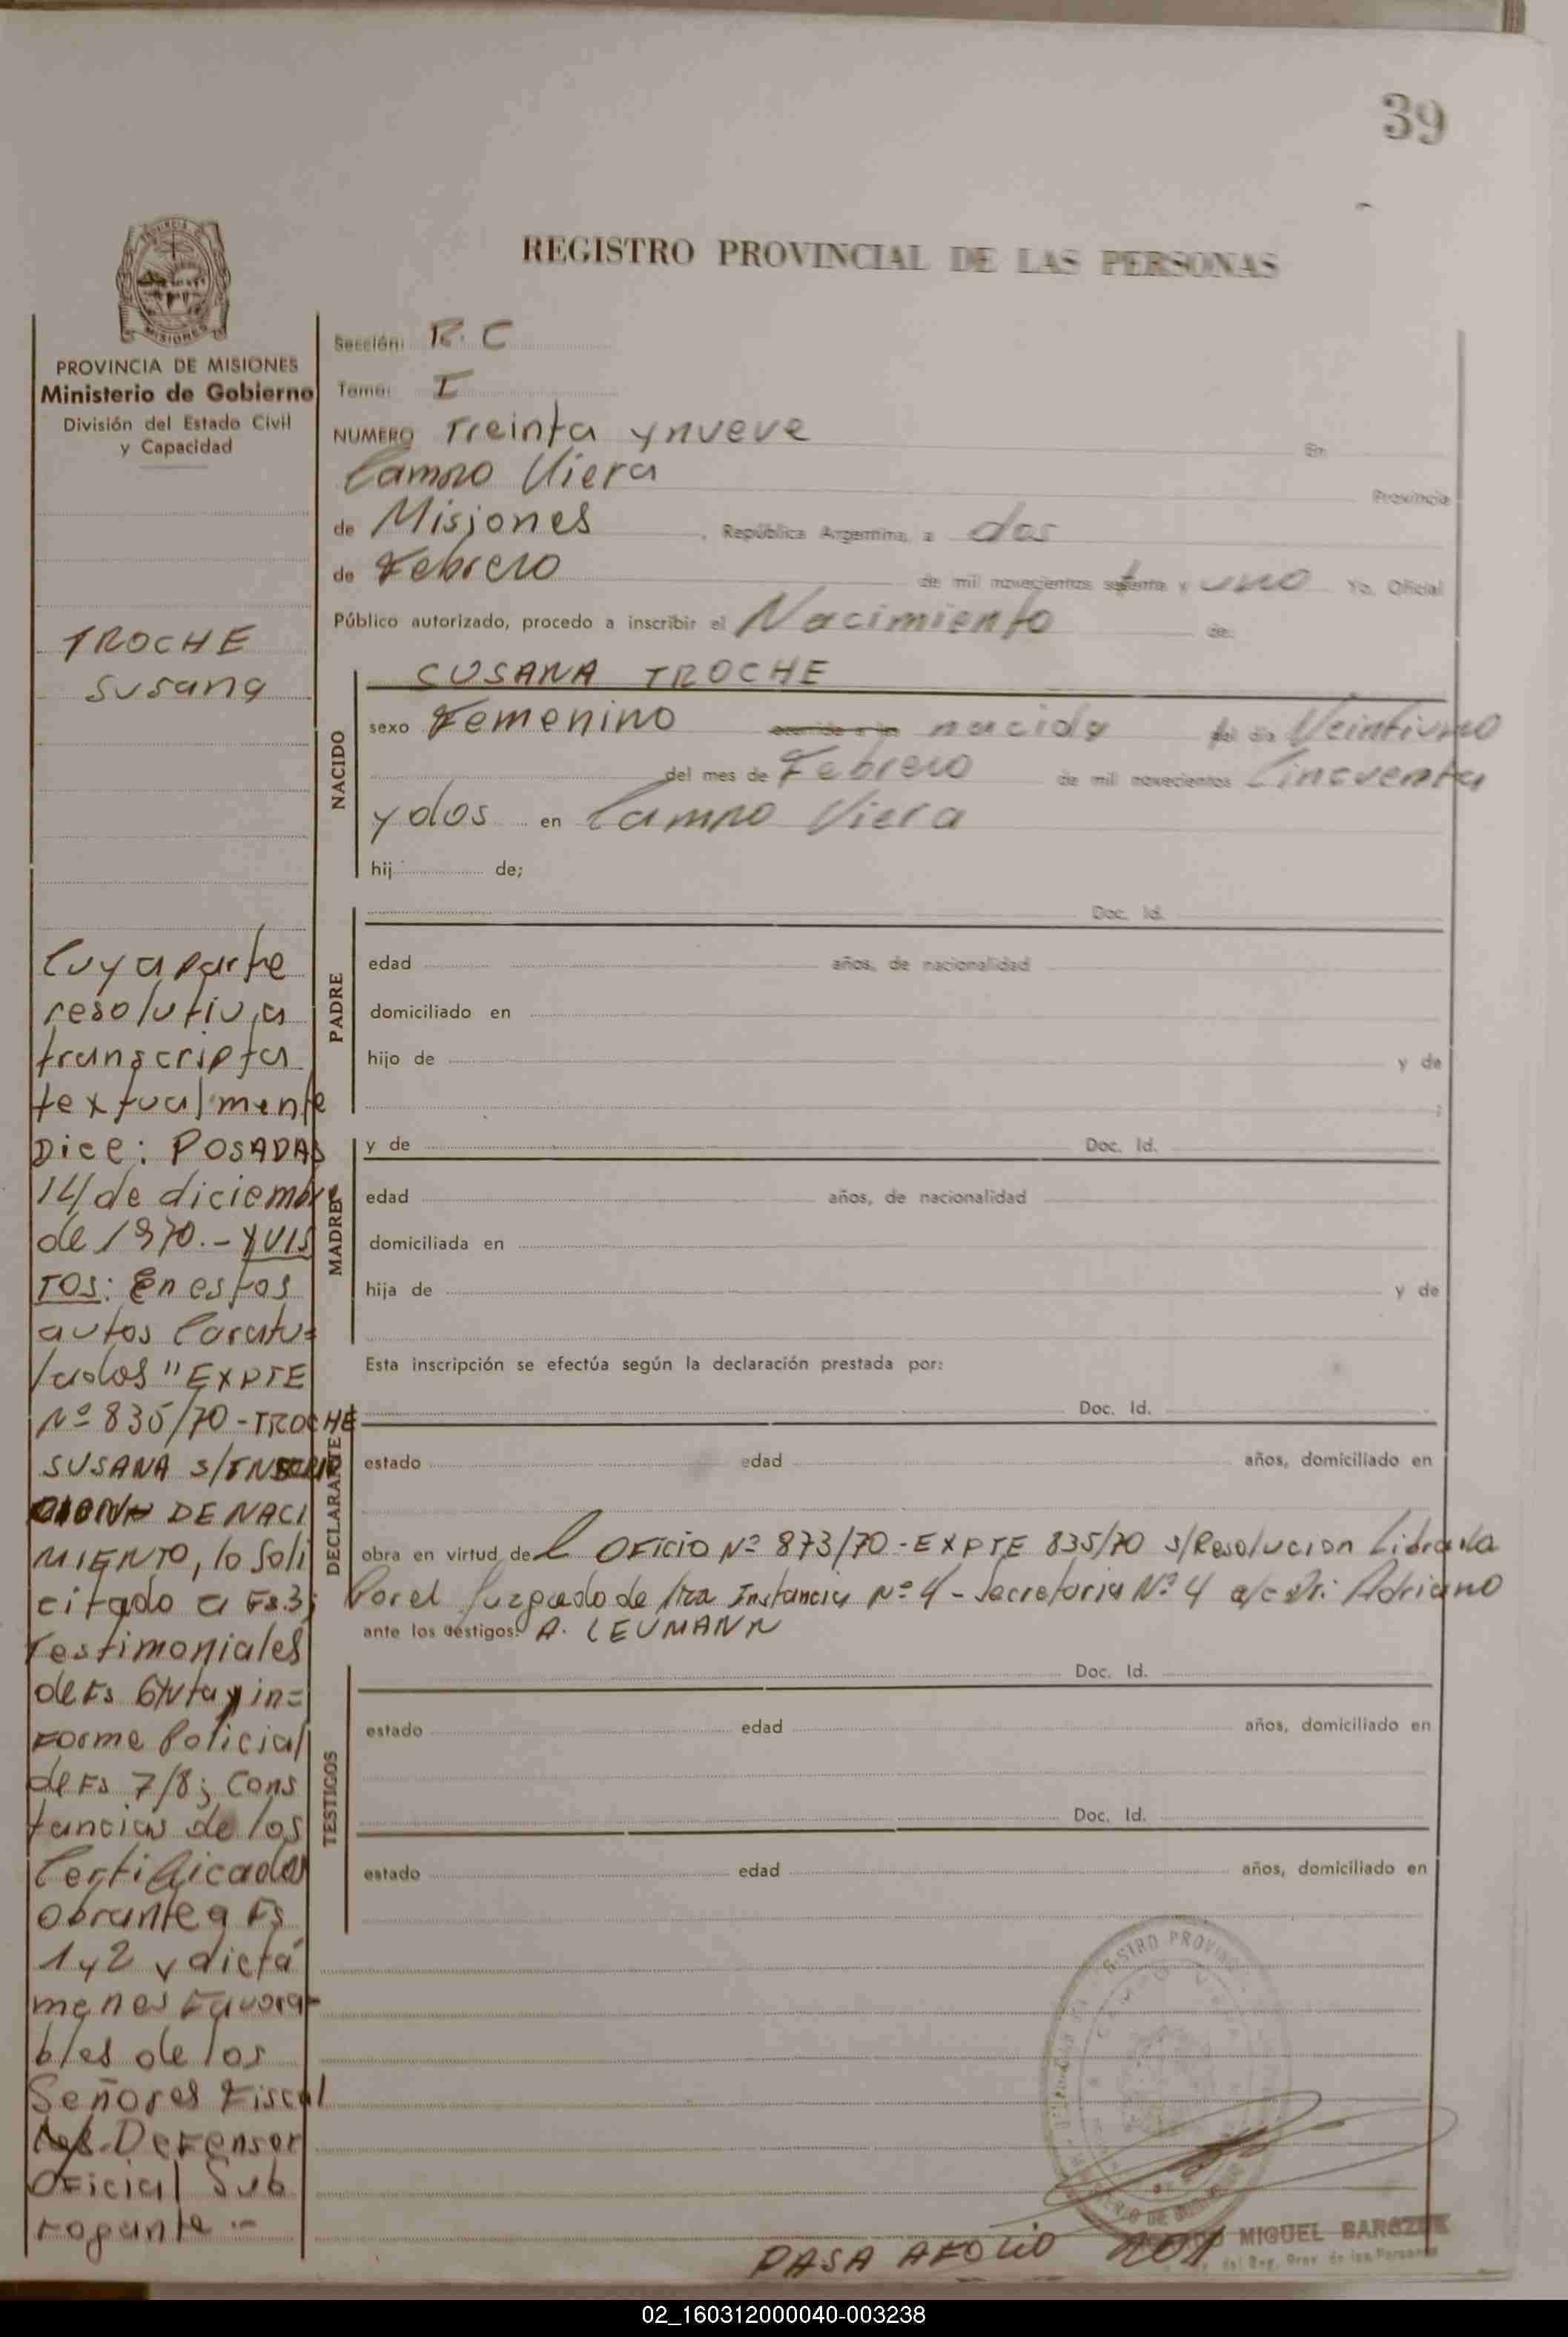 39
REGISTRO PROVINCIAL DE LAS PERSONAS
MISIONES
PROVINCIA DE MISIONES
Ministerio de Gobierno
División del Estado Civil
y Capacidad
TROCHE
Susana
Cuya parte
resolutiva
transcripta
textualmente
Dice: POSADAS
14 de diciembre
de 1970.- Y VIS
TOS: En estos
autos Caratu=
lados "EXPTE
Nº 835/70 - TROCHE
SUSANA S/
DE NACI
MIENTO, lo Soli
citado a Fs 3;
Testimoniales
de Fs 6/vta y in=
Forme Policial
de Fs 7/8; Cons
tancias de los
Certificados
Obrante a Fs
1 y 2 y dictá
menes Favora-
bles de los
Señores Fiscal
Defensor
Oficial Sub
rogante.-
Sección: R. C
Tomo: I
NUMERO Treinta y nueve En
Campo Viera Provincia
de Misiones, República Argentina, a dos
de Febrero de mil novecientos setenta y uno Yo, Oficial
Público autorizado, procedo a inscribir el Nacimiento de:
NACIDO
SUSANA TROCHE
sexo Femenino nacida el día Veintiuno
del mes de Febrero de mil novecientos Cincuenta
y dos en Campo Viera
hij de;
PADRE
Doc. Id.
edad años, de nacionalidad
domiciliado en
hijo de y de
;
MADRE
y de Doc. Id.
edad años, de nacionalidad
domiciliada en
hija de y de
Esta inscripción se efectúa según la declaración prestada por:
DECLARANTE
Doc. Id.
estado edad años, domiciliado en
obra en virtud del OFICIO Nº 873/70 - EXPTE 835/70 s/Resolucion Librada
Por el Juzgado de 1ra Instancia Nº 4 - Secretaria Nº 4 a/c Dr. Adriano
ante los testigos: A. LEUMANN
TESTIGOS
Doc. Id.
estado edad años, domiciliado en
Doc. Id.
estado edad años, domiciliado en
PASA A FOLIO 201
MIGUEL
del Reg. Prov. de las Personas
02_160312000040-003238